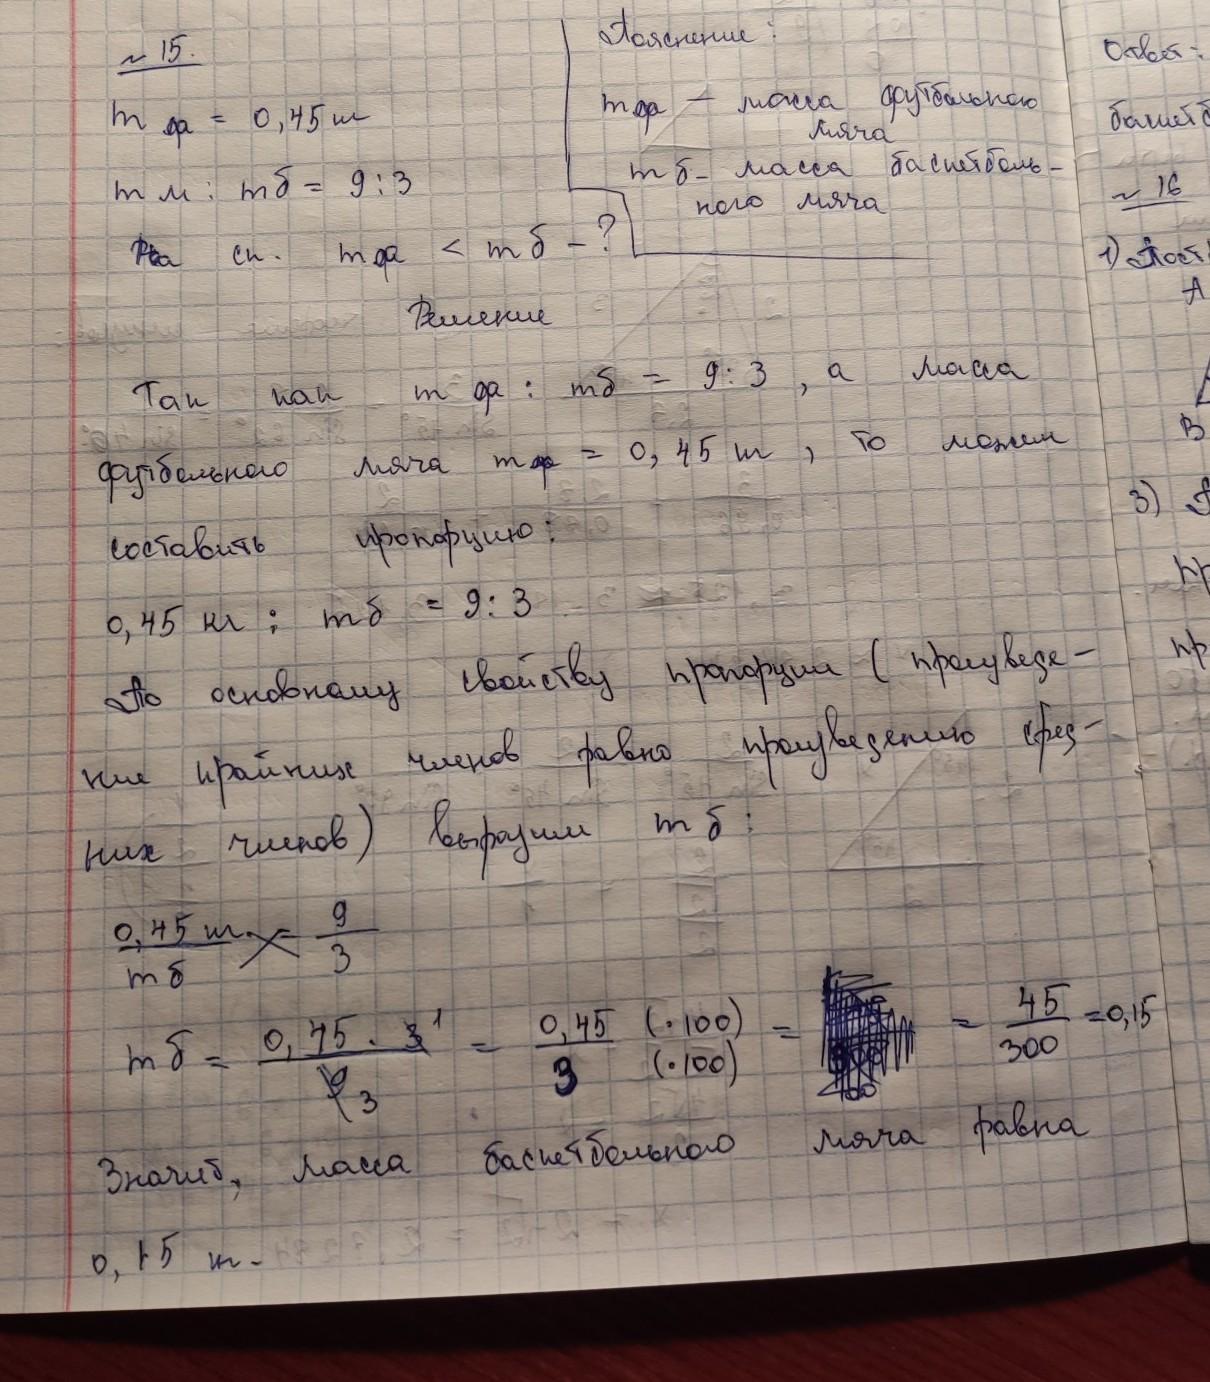 ~ 15.
m ф = 0,45 кг
m м : m б = 9:3
На ск. m ф < m б - ?
Пояснение:
m ф - масса футбольного
мяча
m б - масса баскетболь-
ного мяча
Решение
Так как m ф : m б = 9:3, а масса
футбольного мяча m ф = 0,45 кг, то можем
составить пропорцию:
0,45 кг : m б = 9:3
По основному свойству пропорции (произведе-
ние крайних членов равно произведению сред-
них членов) выразим m б:
0,45 кг / m б = 9 / 3
m б = 0,45 · 3 1 / 9 3 = 0,45 (·100) / 3 (·100) = = 45 / 300 = 0,15
Значит, масса баскетбольного мяча равна
0,15 кг.
Ответ:
баскетб
~ 16
1) Пост
А
В
3)
пр
пр